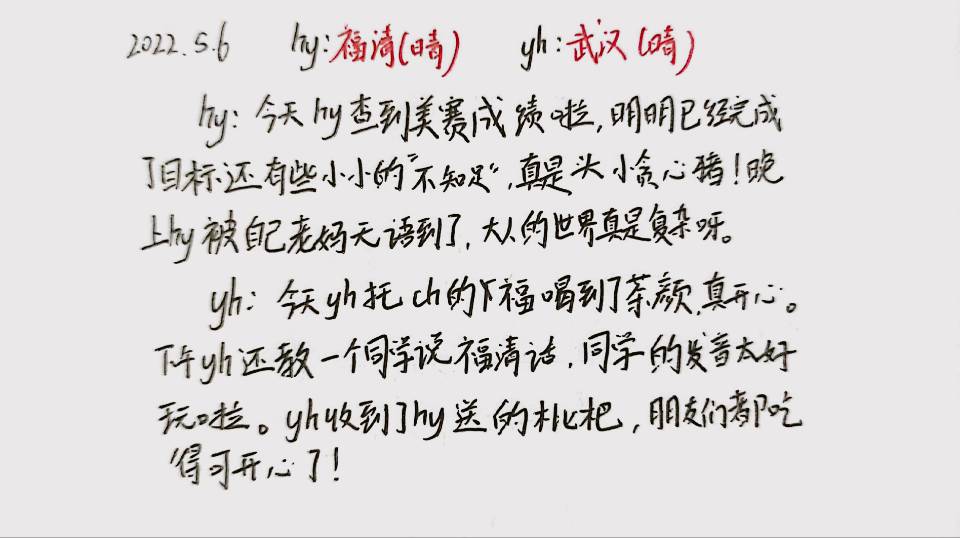 2022.5.6 hy:福清(晴) yh:武汉(晴)
hy:今天hy查到美赛成绩啦,明明已经完成
了目标还有些小小的"不知足",真是头小贪心猪!晚
上hy被自己老妈无语到了,大人的世界真是复杂呀。
yh:今天yh托ch的下福喝到了茶颜,真开心。
下午yh还教一个同学说福清话,同学的发音太好
玩啦。yh收到了hy送的枇杷,朋友们都吃
得可开心了!